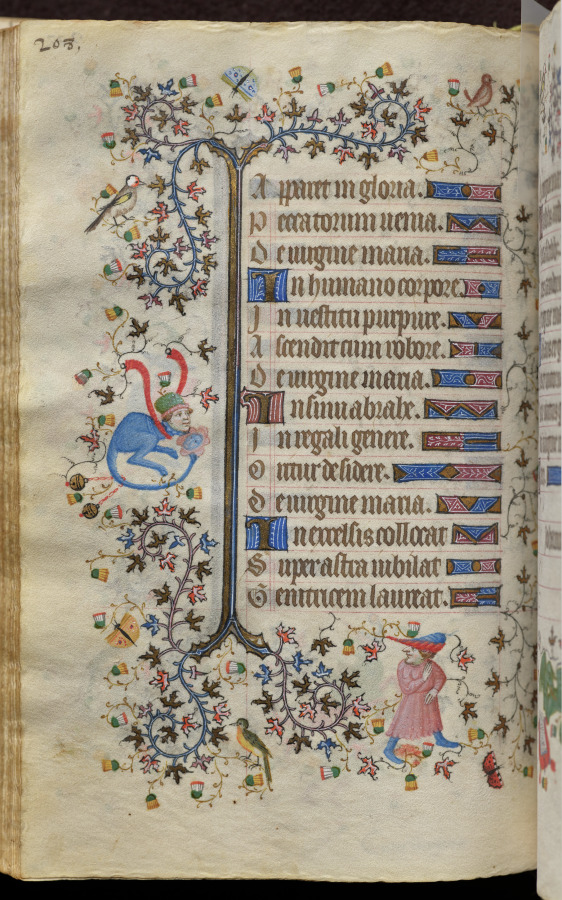 203.
Apparet in gloria.
Peccatorum uenia.
De uirgine maria.
In humano corpore.
In uestitu purpure.
Ascendit cum robore.
De uirgine maria.
In sinu abrahe.
In regali genere.
Oritur de sidere.
De uirgine maria.
In excelsis collocat
Super astra iubilat
Genitricem laureat.